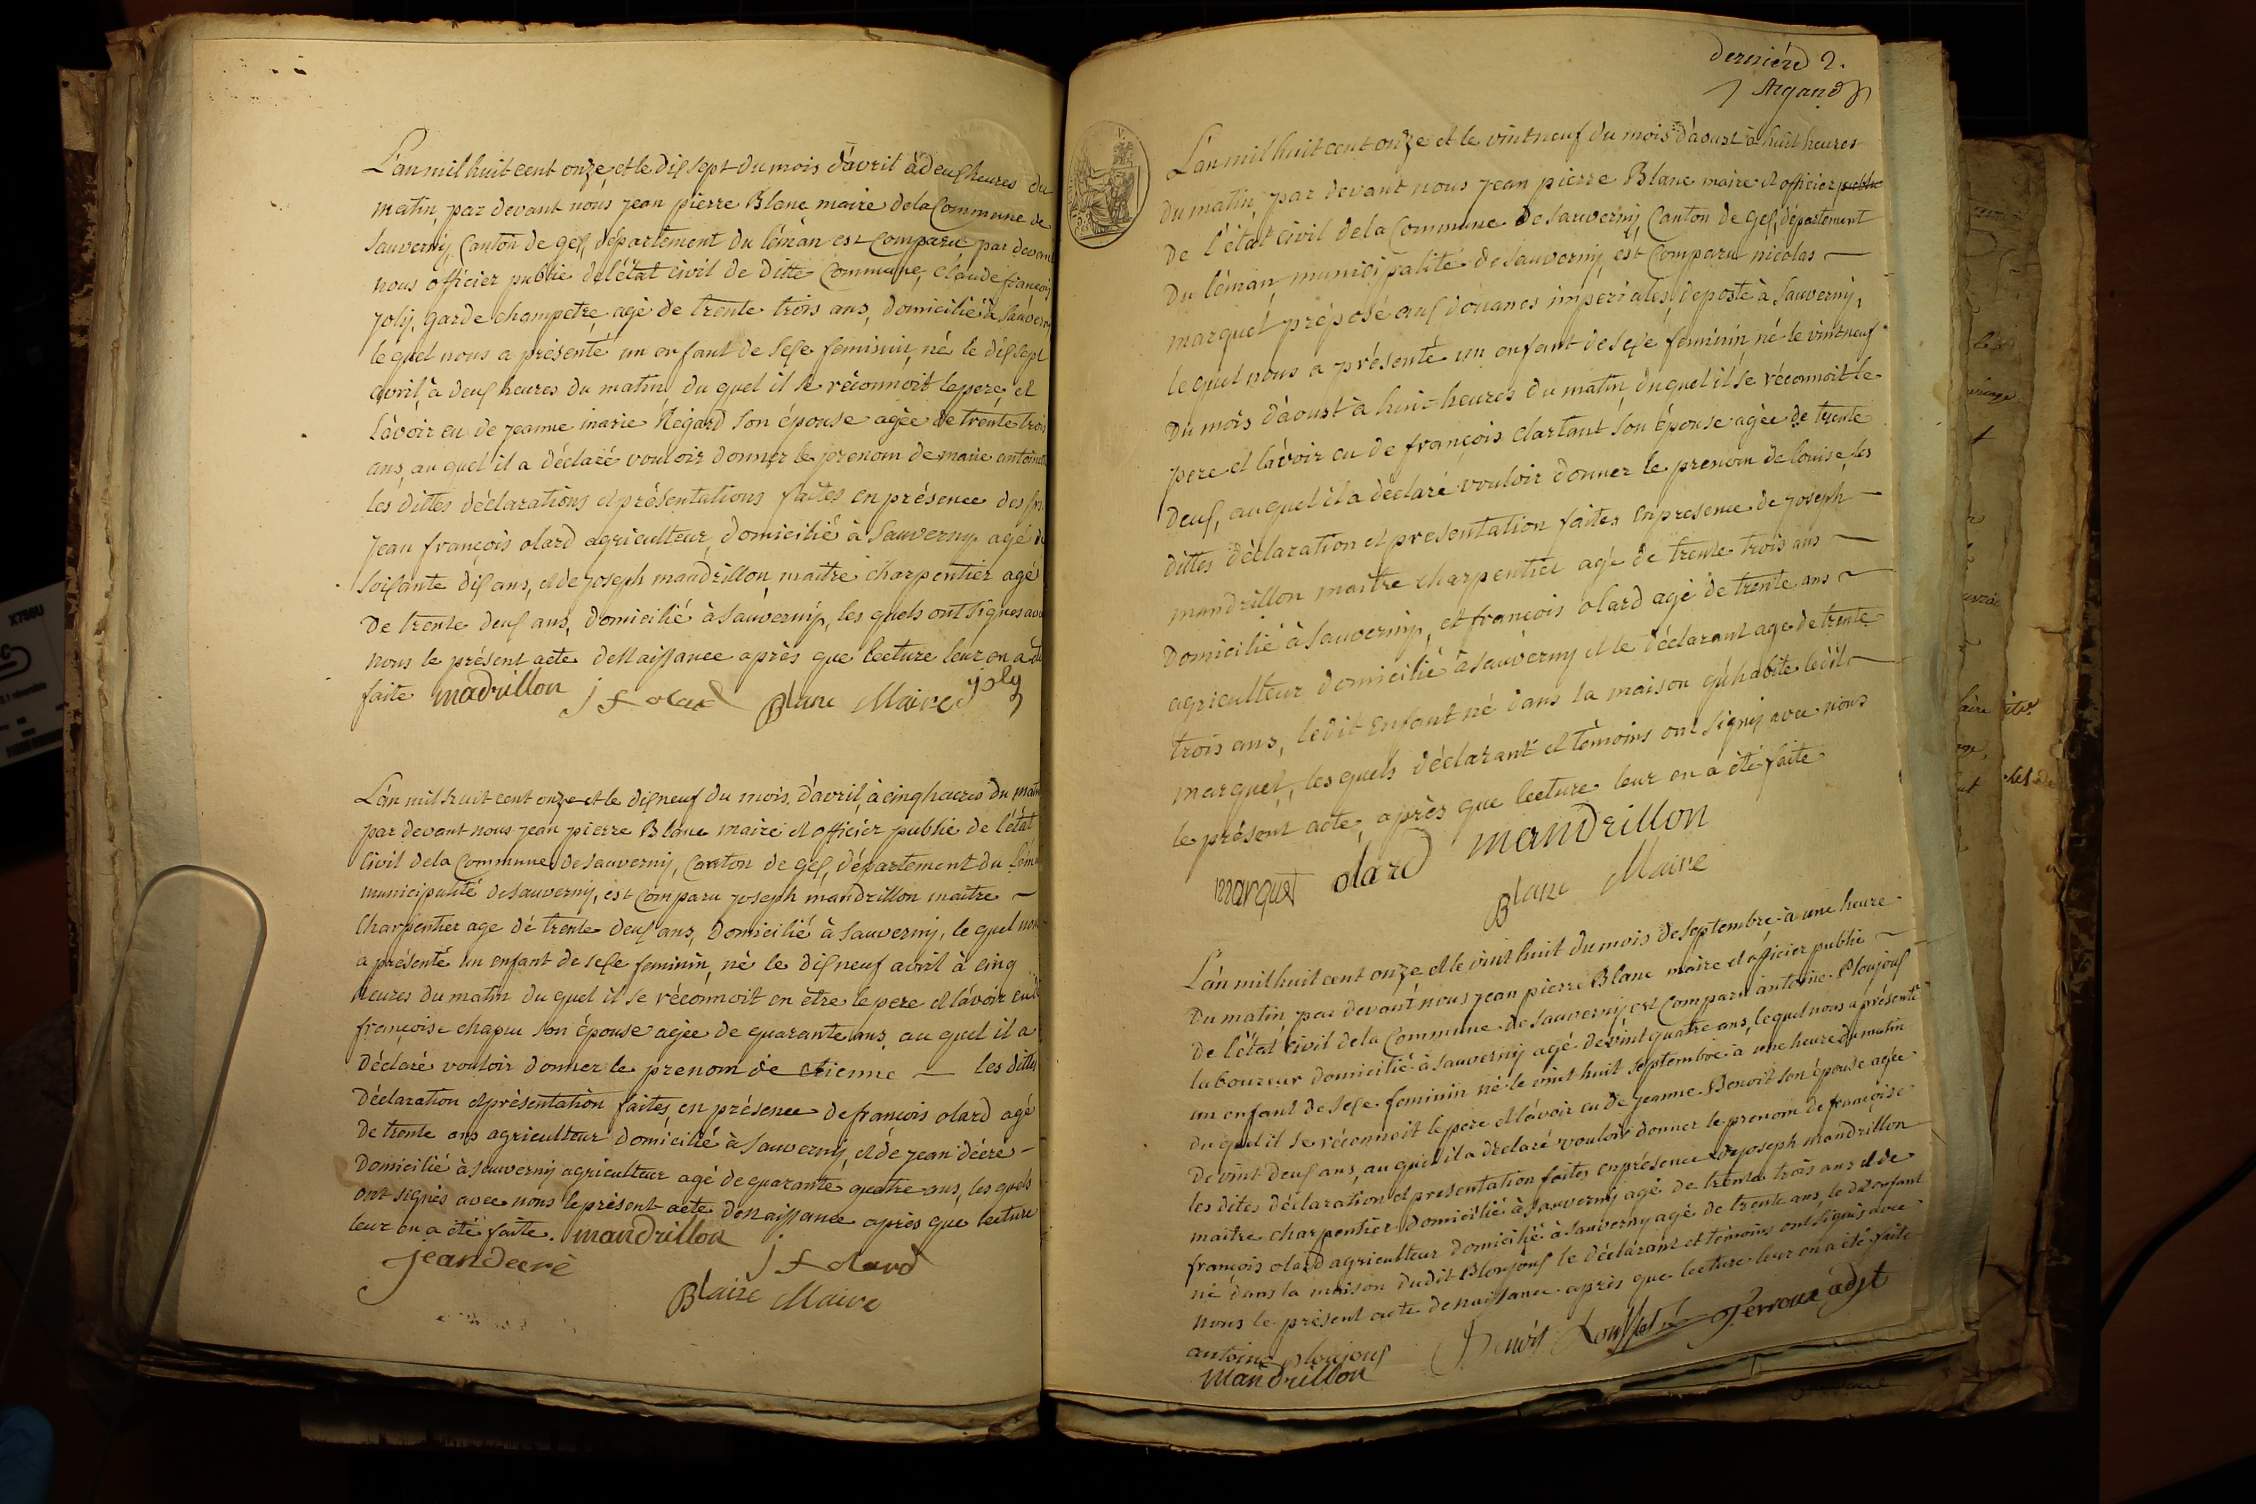 L'an mil huit cent onze, et le dix sept du mois d'avril à deux heures du
matin, par devant nous jean pierre Blanc maire de la Commune de
Sauverny, Canton de gex département du léman est Comparu par devant
nous officier public de l'état civil de ditte Commune, claude françois
joly, garde champetre, agé de trente trois ans, domicilié à Sauverny
le quel nous a présenté un enfant de sexe feminin, né le dix sept
avril, à deux heures du matin, du quel il se réconnoit le pere, et
l'avoir eu de jeanne marie Regard son épouse agée de trente trois
ans, au quel il a déclaré vouloir donner le prenom de marie antoinette
les dittes déclarations et présentations faites en présence des
jean françois olard agriculteur, domicilié à Sauverny agé de
soixante dix ans, et de joseph mandrillon maitre charpentier agé
de trente deux ans, domicilié à Sauverny, les quels ont signes avec
nous le présent acte de Naissance après que lecture leur en a été
faite madrillon j f olard Blanc Maire joly
L'an mil huit cent onze et le dix neuf du mois d'avril, à cinq heures du matin
par devant nous jean pierre Blanc maire et officier public de l'état
Civil de la Commune de Sauverny, Canton de gex, département du léman
municipalité de Sauverny, est Comparu joseph mandrillon maitre
Charpentier age de trente deux ans, domicilié à Sauverny, le quel nous
a présenté un enfant de sexe feminin, né le dix neuf avril à cinq
heures du matin du quel il se réconnoit en etre le pere et l'avoir eu de
françoise chapuc son épouse agée de quarante ans, au quel il a
déclaré vouloir donner le prenom de etienne les dittes
déclaration et présentation faites en présence de françois olard agé
de trente ans agriculteur domicilié à Sauverny, et de jean décré
domicilié à Sauverny agriculteur agé de quarante quatre ans, les quels
ont signés avec nous le présent acte de Naissance après que lecture
leur en a été faite. mandrillon
jean decré j f olard
Blanc Maire
dernière 2.
Argand
L'an mil huit cent onze et le vint neuf du mois d'aoust à huit heures
du matin, par devant nous jean pierre Blanc maire et officier public
de l'état civil de la Commune de Sauverny, Canton de gex, département
du léman, municipalité de Sauverny, est Comparu nicolas
marquet préposé aux douanes imperiales, deposte à Sauverny,
le quel nous a présenté un enfant de sexe feminin né le vint neuf
du mois d'aoust à huit heures du matin, du quel il se réconnoit le
pere et l'avoir eu de françois clartant son épouse agée de trente
deux, au quel il a déclaré vouloir donner le prenom de louise, les
dittes déclaration et presentation faites en presence de joseph
mandrillon maitre charpentier agé de trente trois ans
domicilié à Sauverny, et françois olard agé de trente ans
agriculteur domicilié à Sauverny et le déclarant age de trente
trois ans, ledit enfant né dans la maison qu'habite ledit
marquet, les quels déclarant et témoins ont signy avec nous
le présent acte, après que lecture leur en a été faite
marquet olard mandrillon
Blanc Maire
L'an mil huit cent onze et le vint huit du mois de septembre à une heure
du matin, par devant nous jean pierre Blanc maire et officier public
de l'état civil de la Commune de Sauverny est Comparu antoine Ploujoux
laboureur domicilié à Sauverny agé de vint quatre ans, le quel nous a présenté
un enfant de sexe feminin né le vint huit septembre à une heure du matin
du quel il se réconnoit le pere et l'avoir eu de jeanne Benoit son épouse agée
de vint deux ans, au quel il a déclaré vouloir donner le prenom de françoise
les dites déclaration et presentation faites en présence de joseph mandrillon
maitre charpentier domicilié à Sauverny agé de trente trois ans et de
françois olard agriculteur domicilié à Sauverny agé de trente ans, le dit enfant
né dans la maison dudit Ploujoux le déclarant et témoins ont signés avec
nous le présent acte de naissance après que lecture leur en a été faite
antoine Ploujoux Perroux adjt
mandrillon